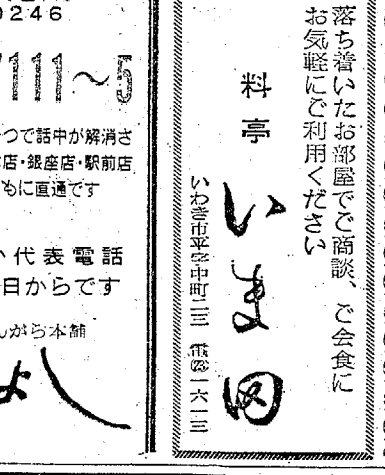 落ち着いたお部屋でご商談、ご会食に
お気軽にご利用ください
料亭
いま田
いわき市平字中町二三 電㉓一六一三
9246
111〜5
つで話中が解消さ
店・銀座店・駅前店
もに直通です
い代表電話
日からです
んがら本舗
よし